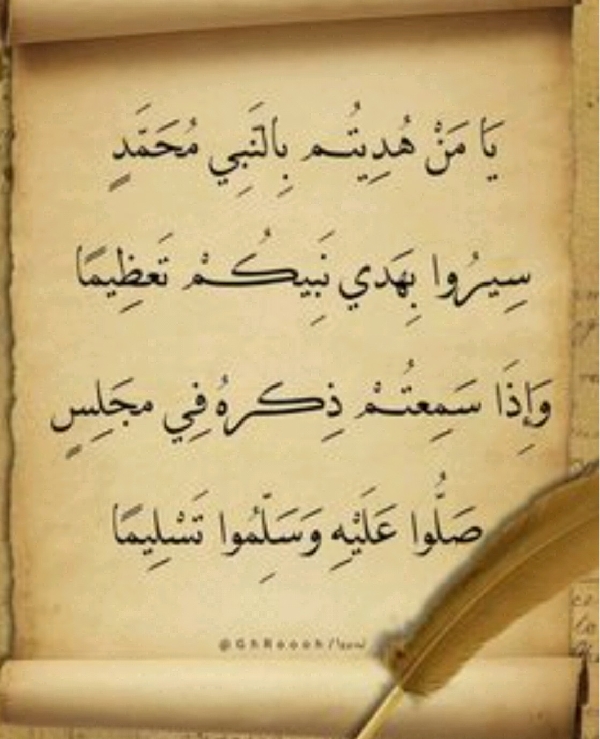 يَا مَنْ هُدِيتُم بِالنَبِي مُحَمَّدٍ
سِيرُوا بِهَدي نَبِيكُمْ تَعظِيمًا
وَإِذَا سَمِعتُمْ ذِكرهُ فِي مجَلِسٍ
صَلُّوا عَلَيْهِ وَسَلِّمُوا تَسْلِيمًا
@GhRoooh/